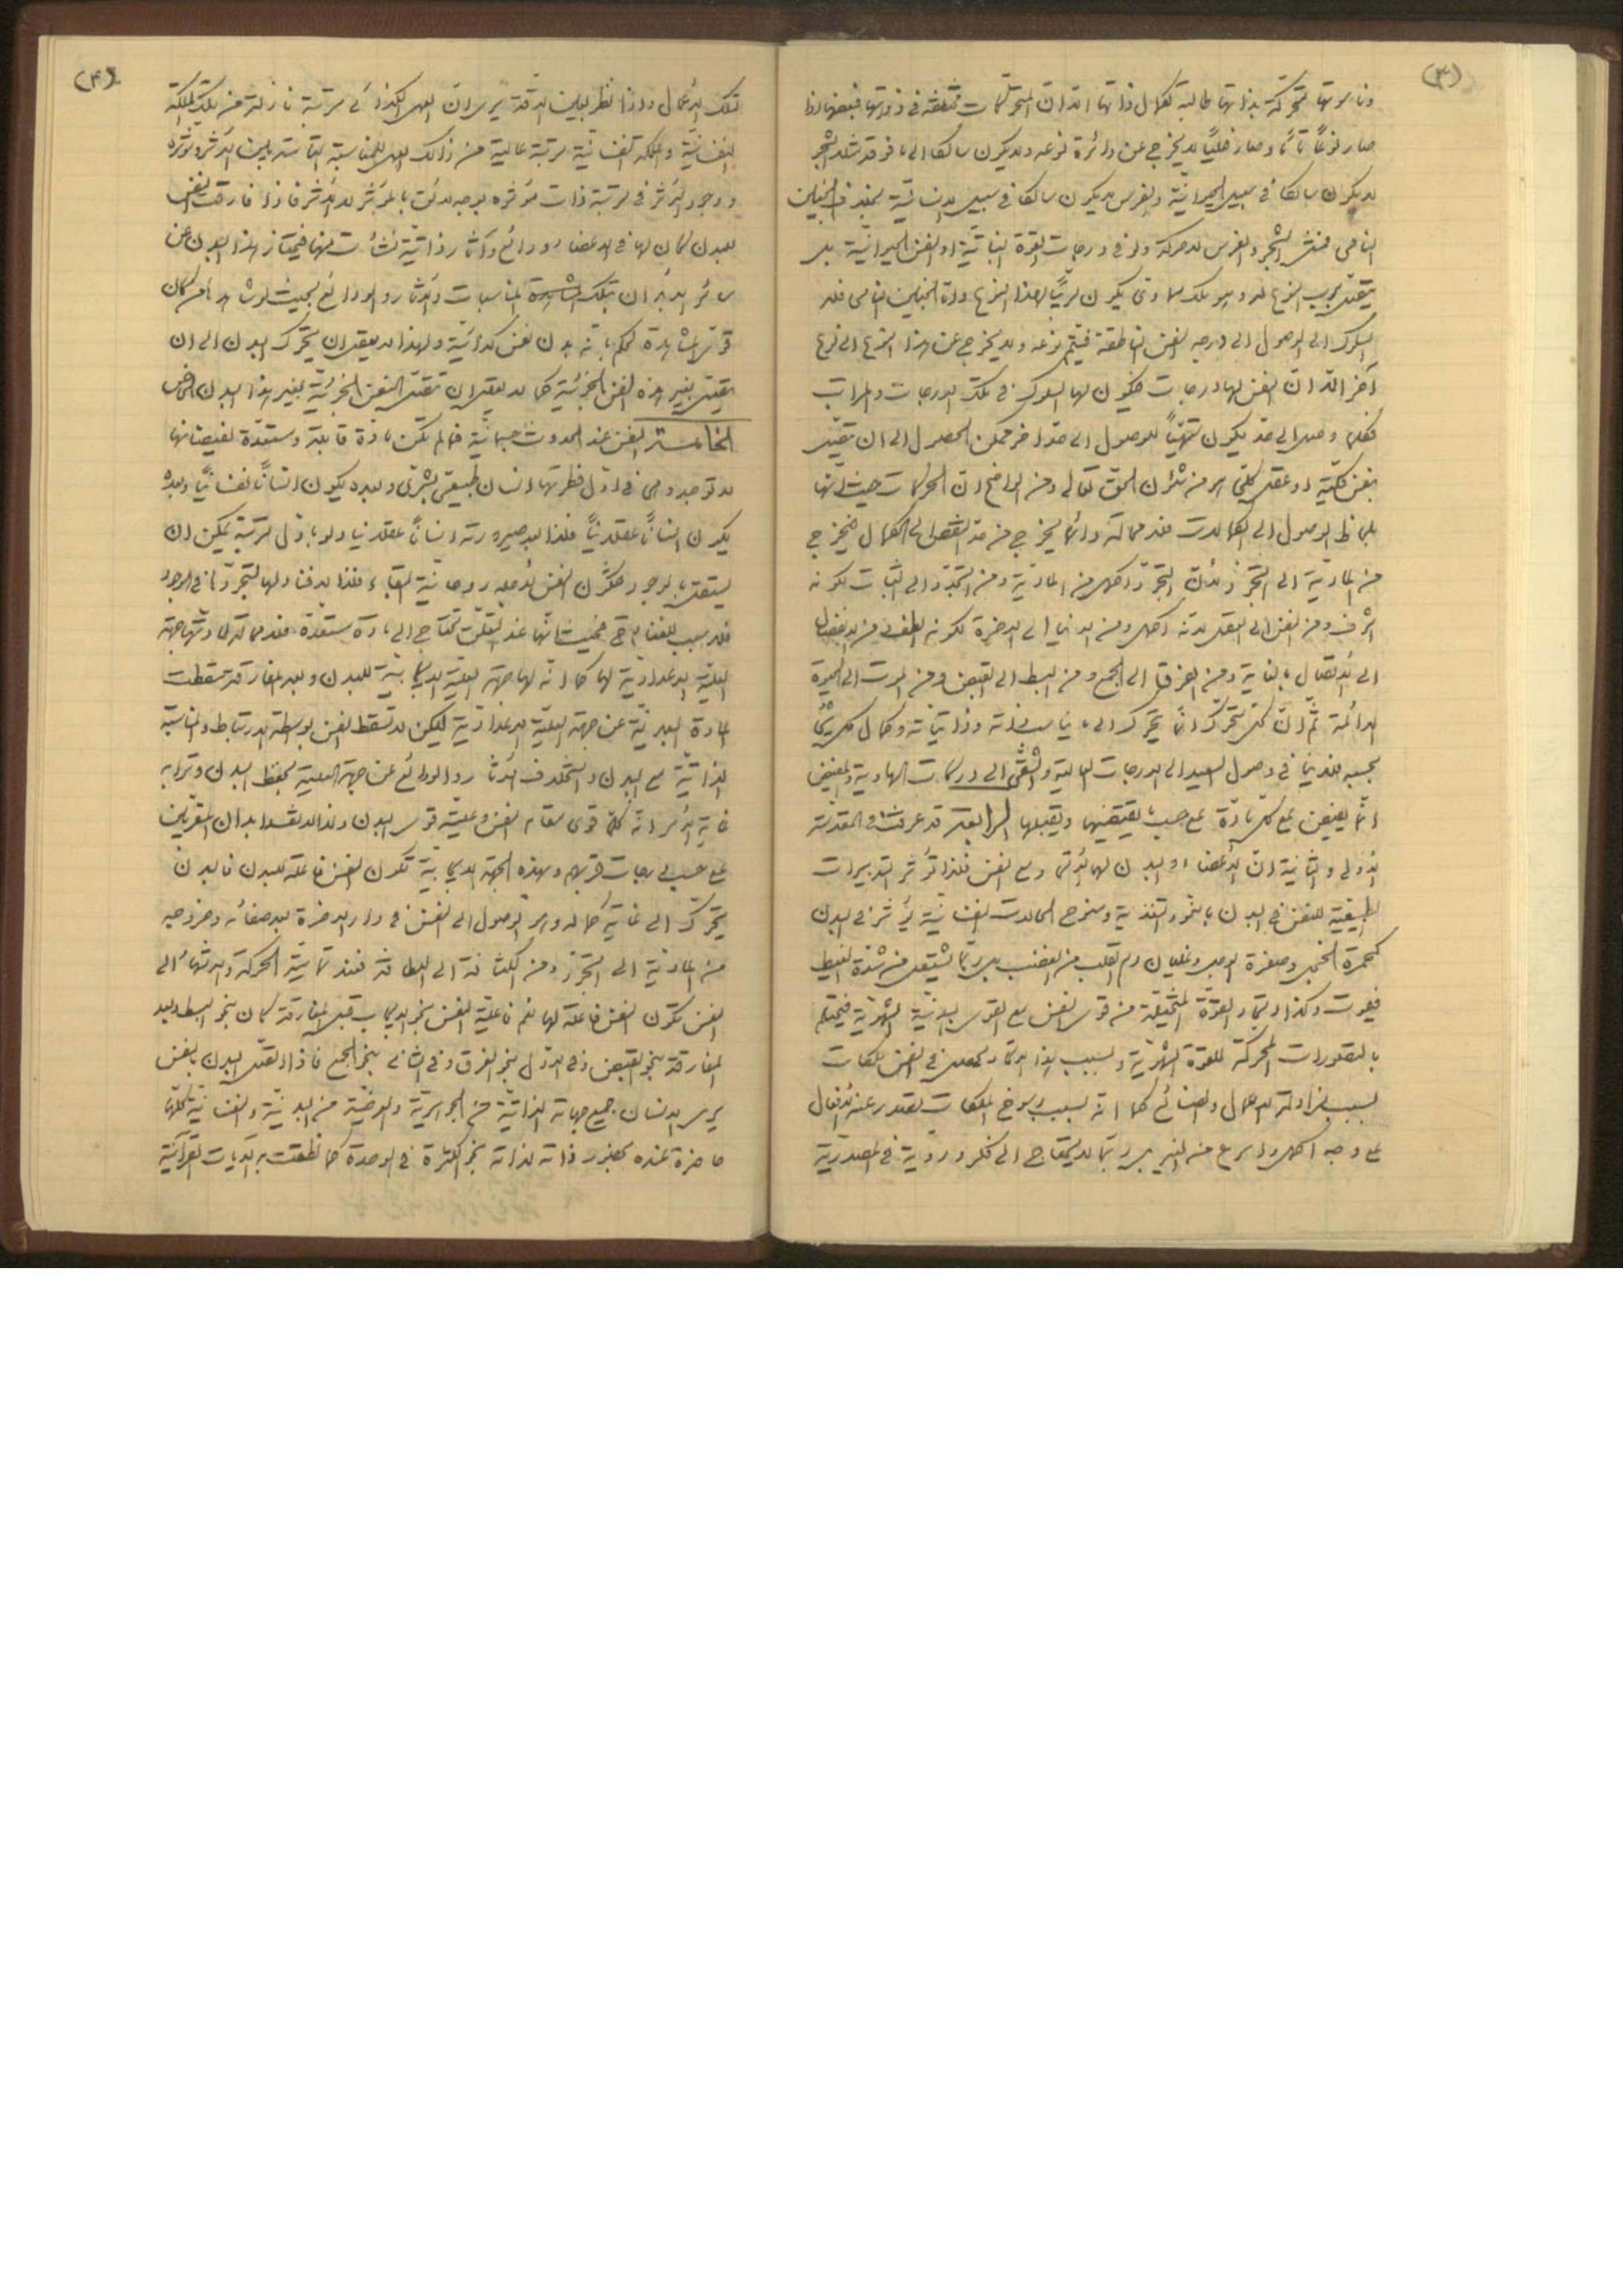 (٣)
متحركة بذاتها طالبة لكمال ذاتها الا ان المتحركات مختلفة في ذواتها فبعضها اذا
صار نوعًا تامًا وصار فعليًا لا يخرج عن دائرة نوعه ولا يكون سالكا الى ما فوقه مثلا الشجر
لا يكون سالكا في سبيل الحيوانية والفرس لا يكون سالكا في سبيل الانسانية بخلاف الجنين
النامي فمثل الشجر والفرس له حركة ولو في درجات القوة النباتية او النفس الحيوانية بل
الى الوصول الى درجه النفس الناطقة فيتم نوعه ولا يخرج عن هذا النوع الى نوع
آخر الا ان النفس لها درجات فيكون لها السلوك في تلك الدرجات والمراتب
فكلما وصل الى حد يكون متهيئًا للوصول الى حد اخر ممكن الحصول الى ان تتصل
بنفس كلية او عقل كلي هو من شئون الحق تعالى ومن الواضح ان الحركات حيث انها
بلحاظ الوصول الى الكمالات فلا محالة دائما يخرج من حد النقص الى الكمال فيخرج
من المادية الى التجرد لأن التجرد اكمل من المادية ومن التجدد الى الثبات لكونه
اشرف ومن النفس الى العقل لانه اكمل ومن الدنيا الى الاخرة لكونه الطف ومن الانفصال
الى الاتصال بالغاية ومن الفرق الى الجمع ومن البسط الى القبض ومن الموت الى الحيوة
الدائمة ثم ان كل متحرك انما يتحرك الى ما يناسب ذاته وذاتياته وكمال كل شيء
بحسبه فلا ينافي وصول السعيد الى الدرجات العالية والشقي الى دركات الهاوية والمفيض
انما يفيض على كل مادة على حسب ما يقتضيها ويقبلها الرابعة قد عرفت في المقدمة
الاولى والثانية ان الاعضاء والبدن لهما مع النفس فلذا تؤثر التدبيرات
الطبيعية للنفس في البدن بالنمو والتغذية وسنوح الحالات النفسانية يؤثر في البدن
كحمرة الخجل وصفرة الوجل وغليان دم القلب من الغضب بل ربما يشتعل من شدة الغيظ
فيموت وكذا اتحاد القوة المتخيلة من قوى النفس مع القوى البدنية الشهوية فيحتلم
بالتصورات المحركة للقوة الشهوية وبسبب هذا الاتحاد يحصل في النفس ملكات
بسبب مزاولة الاعمال والصنائع كما انه بسبب رسوخ الملكات يصدر عنه الافعال
على وجه اكمل واسرع من الغير بل ربما لا يحتاج الى فكر وروية في مصدرية
(۴)
تلك الاعمال واذا نظر بعين الدقة يرى ان العمل الكذائي مرتبة نازلة من تلك الملكة
النفسانية والملكة النفسانية مرتبة عالية من ذلك العمل للمناسبة التامة بين الاثر ومؤثره
ووجود الاثر في مرتبة ذات مؤثره بوجه لائق بالمؤثر لا الاثر فاذا فارقت النفس
للبدن كان لها في الاعضاء ودائع وآثار ذاتية نشأت منها فيمتاز هذا البدن عن
سائر الابدان بتلك المناسبات والآثار والودائع بحيث لو شاهد من كان
قوى المشاهدة لحكم بانه بدن نفس كذائية ولهذا لا يعقل ان يتحرك البدن الى ان
يتصل بغير هذه النفس الجزئية كما لا يعقل ان تتصل النفس الجزئية بغير هذا البدن الخاص
الخامسة النفس عند الحدوث جسمانية فما لم تكن مادة قابلة ومستعدة لفيضانها
لا توجد وهي في اول فطرتها انسان طبيعي بشري وبعده يكون انسانًا نفسانيًا وبعده
يكون انسانًا عقلانيًا فلذا بعد صيرورته انسانًا عقلانيا ولو باول مرتبة يمكن ان
يستقل بالوجود فتكون النفس روحانية البقاء فلذا لا فناء لها لتجردها في الوجود
فلا سبب للفناء فحيث انها عند التعلق تحتاج الى مادة مستعدة فلا محالة لمادتها جهة
العلية الاعدادية لها كما انه لها جهة العلية الايجابية للبدن وبعد المفارقة سقطت
المادة البدنية عن جهة العلية الاعدادية لكن لا تسقط النفس بواسطة الارتباط والمناسبة
الذاتية مع البدن واستخلاف الآثار والودائع عن جهة العلية لحفظ البدن وترابه
غاية الامر انه كلما قوى مقام النفس وعليته قوى البدن
على حسب درجات قربهم وبهذه الجهة الايجابية تكون النفس فاعلة للبدن فالبدن
يتحرك الى غاية كماله وهو الوصول الى النفس في دار الاخرة بعد صفائه وخروجه
من المادية الى التجرد ومن الكثافة الى اللطافة فعند تمامية الحركة والانتهاء الى
النفس تكون النفس فاعلة لها نعم فاعلية النفس بنحو الايجاب قبل المفارقة كان بنحو البسط وبعد
المفارقة بنحو القبض وفي الاول بنحو الفرق وفي الثاني بنحو الجمع فاذا اتصل البدن بالنفس
يرى الانسان جميع جهاته الذاتية من الجوهرية والعرضية من البدنية والنفسانية كلها
حاضرة عنده كحضور ذاته لذاته بنحو الكثرة في الوحدة كما نطقت به الآيات القرآنية